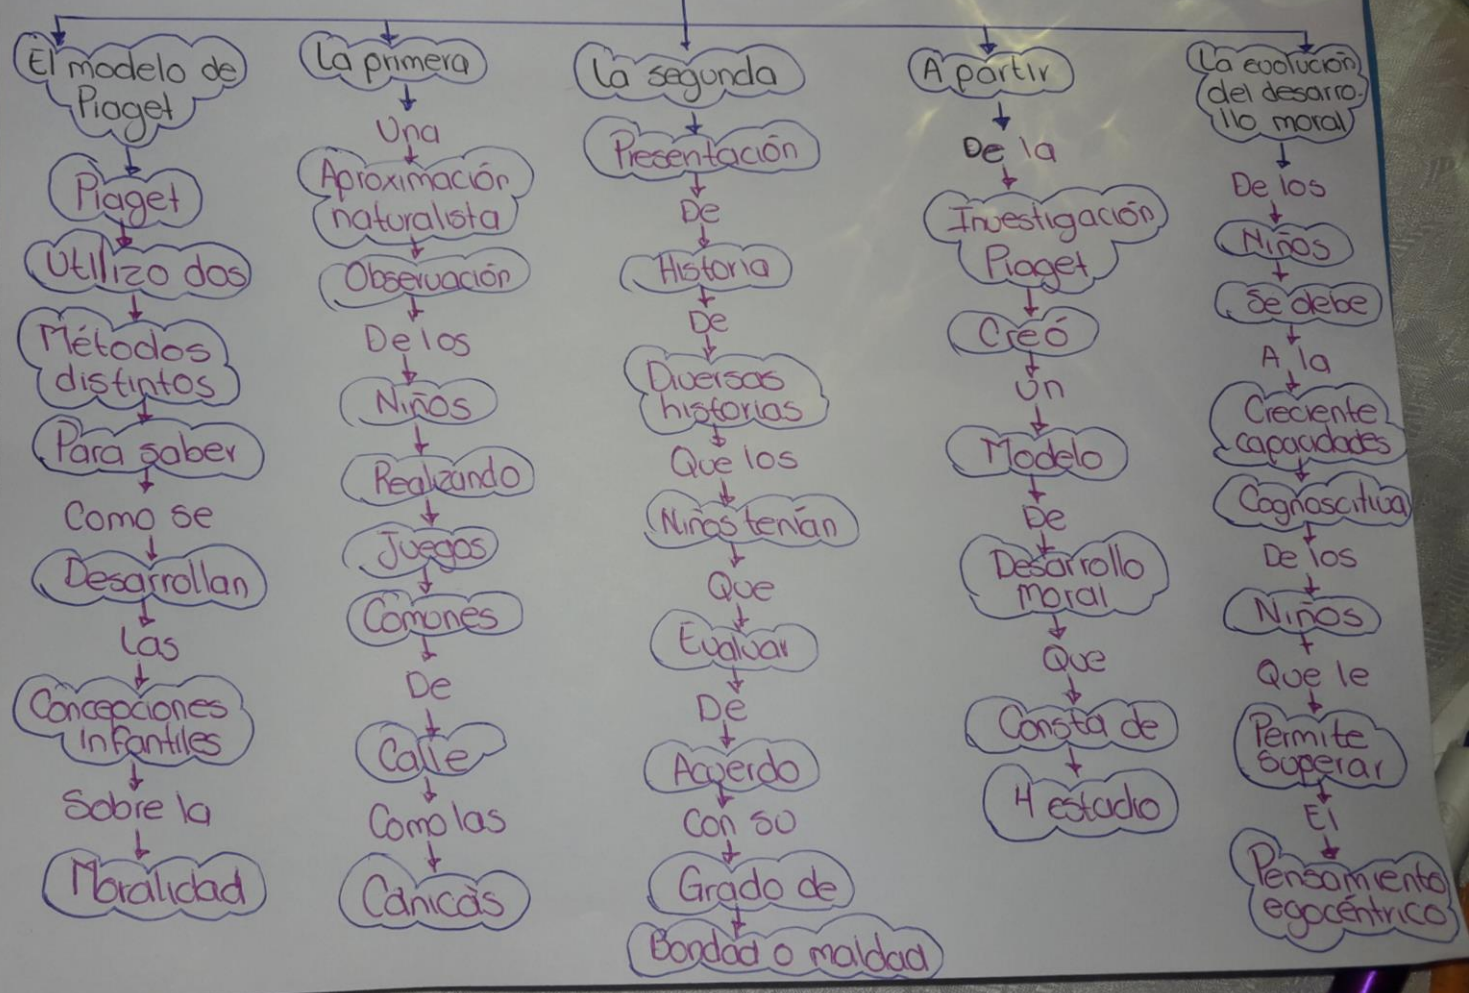 El modelo de
Piaget
Piaget
Utilizo dos
Métodos
distintos
Para saber
Como se
Desarrollan
Las
Concepciones
infantiles
Sobre la
Moralidad
La primera
Una
Aproximación
naturalista
Observación
De los
Niños
Realizando
Juegos
Comones
De
Calle
Como las
Canicas
La segunda
Presentación
De
Historia
De
Diversas
historias
Que los
Niños tenían
Que
Evaluar
De
Acuerdo
Con so
Grado de
Bondad o maldad
A partir
De la
Investigación
Piaget
Creó
Un
Modelo
De
Desarrollo
moral
Que
Consta de
4 estadio
La evolución
del desarro-
llo moral
De los
Niños
Se debe
A la
Creciente
capacidades
Cognoscitiva
De los
Niños
Que le
Permite
superar
El
Pensamiento
egocéntrico